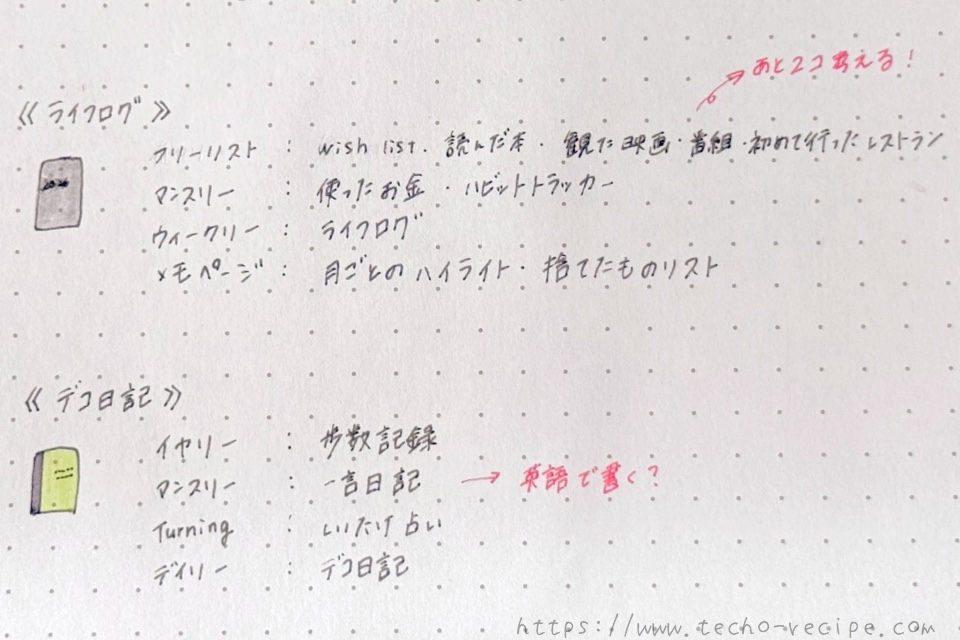 あと2コ考える!
《ライフログ》
2026
フリーリスト : wish list. 読んだ本・観た映画・番組・初めて行ったレストラン
マンスリー : 使ったお金・ハビットトラッカー
ウィークリー : ライフログ
メモページ : 月ごとのハイライト・捨てたものリスト
《デコ日記》
イヤリー : 歩数記録
マンスリー : 一言日記 → 英語で書く?
Turning : しいたけ占い
デイリー : デコ日記
https://www.techo-recipe.com